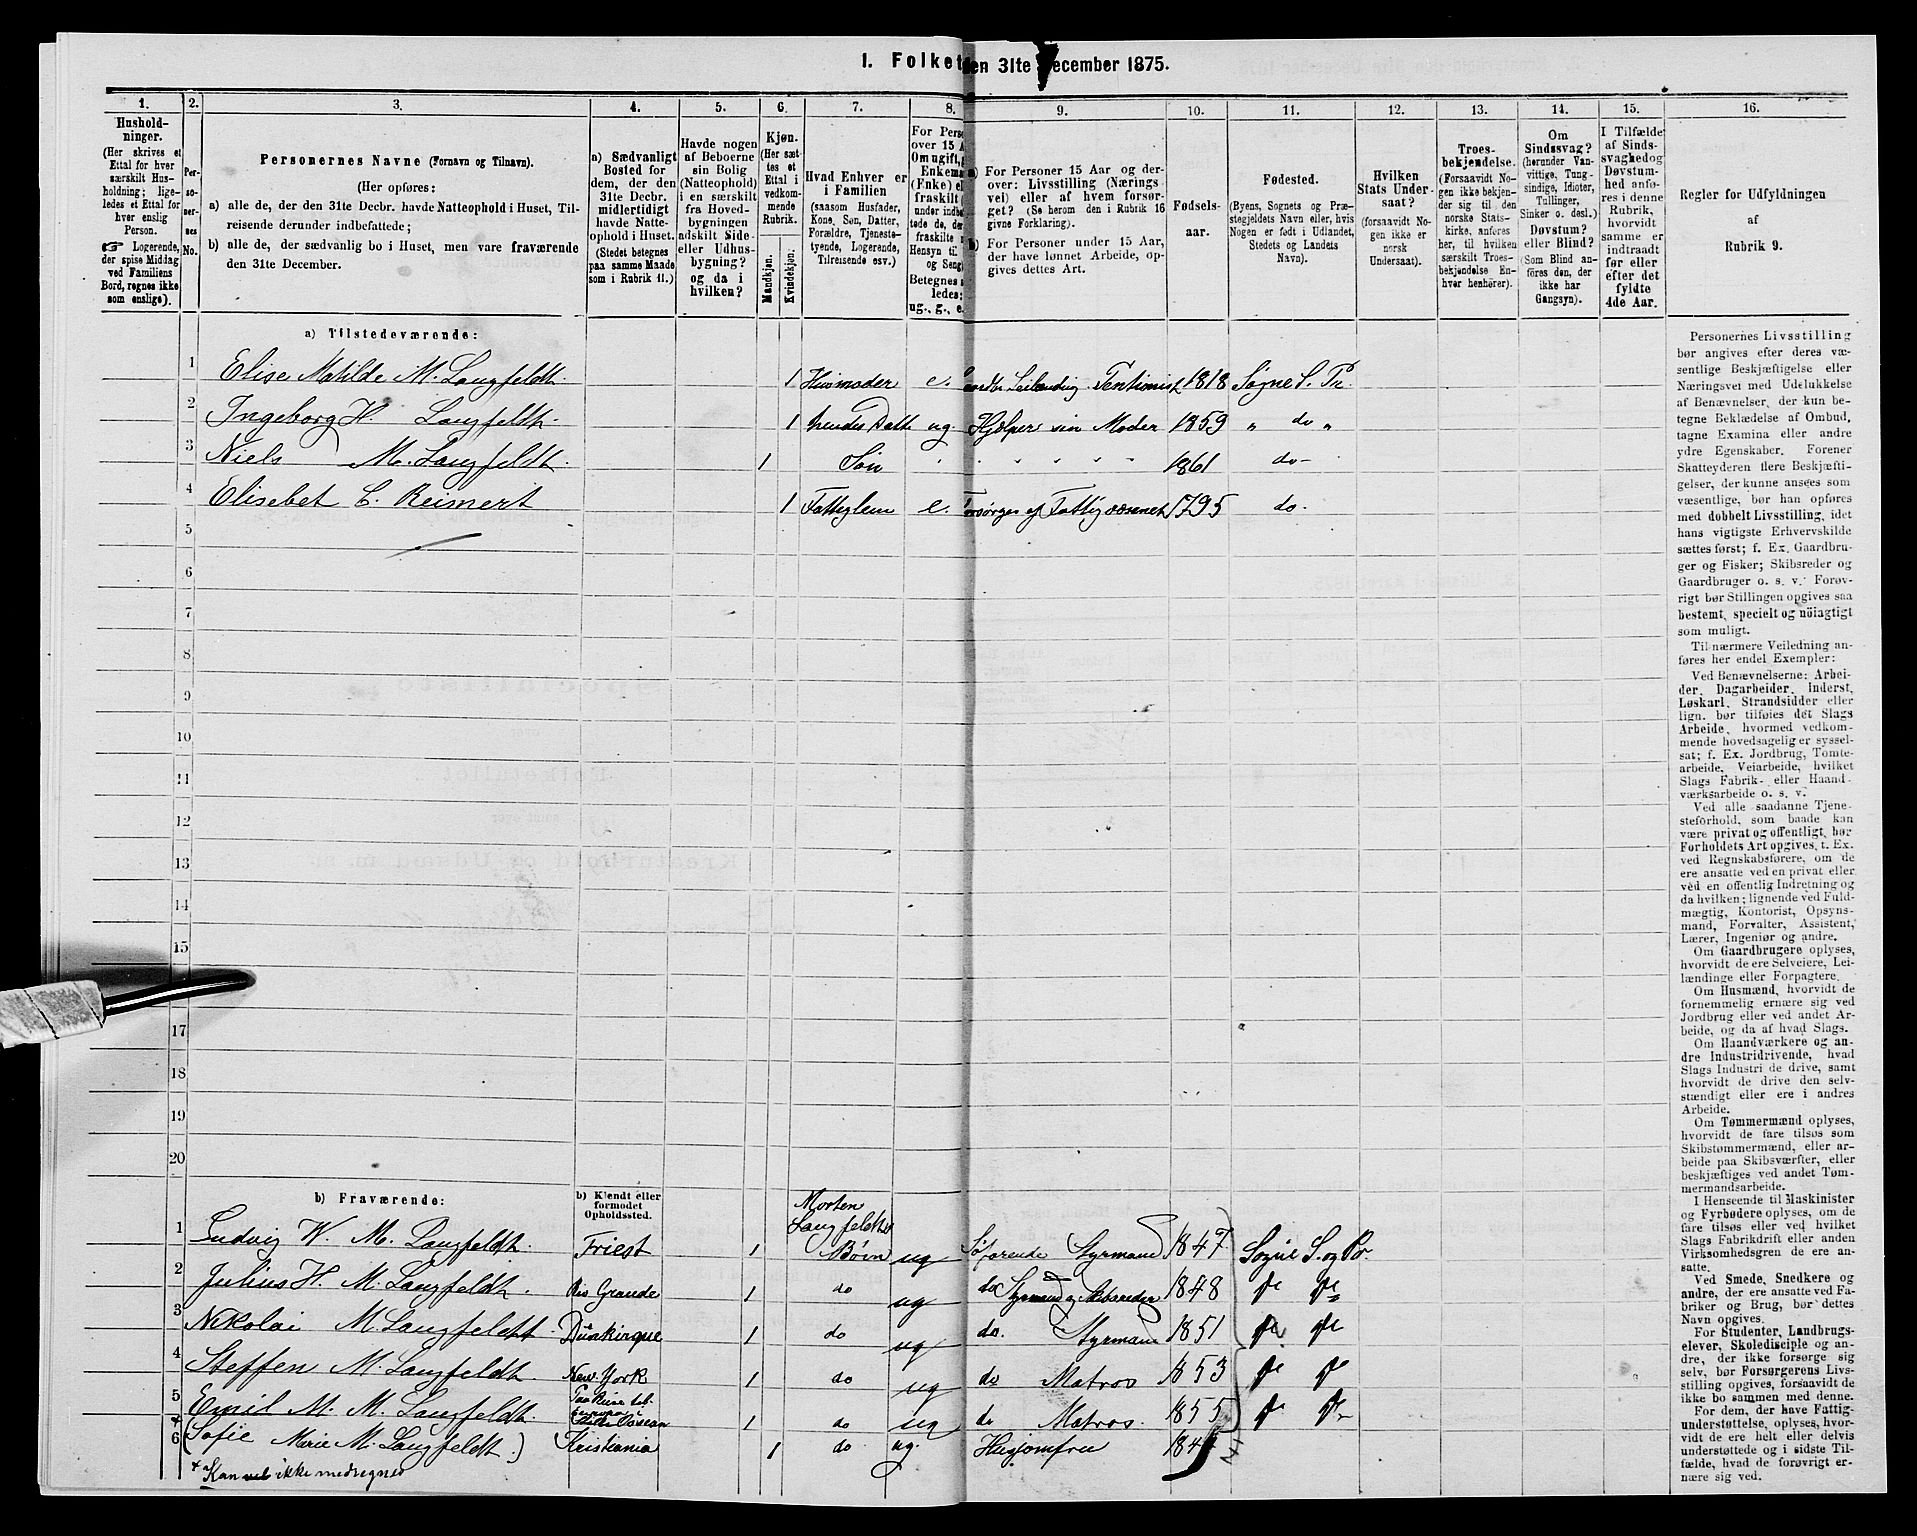 I. Folket
den 31te December 1875.
1.
Hushold-
ninger.
(Her skrives et
Ettal for hver
særskilt Hus-
holdning; lige-
ledes et Ettal for
hver enslig
Person.
☞ Logerende,
der spise Middag
ved Familiens
Bord, regnes ikke
som enslige).
2.
Per-
so-
ner-
nes
No.
3.
Personernes Navne (Fornavn og Tilnavn).
(Her opføres:
a) alle de, der den 31te Decbr. havde Natteophold i Huset, Til-
reisende derunder indbefattede;
b) alle de, der sædvanlig bo i Huset, men vare fraværende
den 31te December.
4.
a) Sædvanligt
Bosted for
dem, der den
31te Decbr.
midlertidigt
havde Natte-
ophold i Huset.
(Stedet betegnes
paa samme Maade
som i Rubrik 11.)
5.
Havde nogen
af Beboerne
sin Bolig
(Natteophold)
i en særskilt
fra Hoved-
bygningen
adskilt Side-
eller Udhus-
bygning?
og da i
hvilken?
6.
Kjøn.
(Her sæt-
tes et
Ettal i
vedkom-
mende
Rubrik.
Mandkjøn.
Kvindekjøn.
7.
Hvad Enhver er
i Familien
(saasom Husfader,
Kone, Søn, Datter,
Forældre, Tjeneste-
tyende, Logerende,
Tilreisende osv.)
8.
For Perso
over 15 A
Om ugift,
Enkema
(Enke) el
fraskilt
under indbe
tede de, der
fraskilte
Hensyn til
og Seng
Betegnes
ledes:
ug., g., e.
9.
a) For Personer 15 Aar og der-
over: Livsstilling (Nærings-
vei) eller af hvem forsør-
get? (Se herom den i Rubrik 16
givne Forklaring).
b) For Personer under 15 Aar,
der have lønnet Arbeide, op-
gives dettes Art.
10.
Fødsels-
aar.
11.
Fødested.
(Byens, Sognets og Præ-
stegjeldets Navn eller, hvis
Nogen er født i Udlandet,
Stedets og Landets
Navn).
12.
Hvilken
Stats Under-
saat?
(forsaavidt No-
gen ikke er
norsk
Undersaat).
13.
Troes-
bekjendelse.
(Forsaavidt No-
gen ikke bekjen-
der sig til den
norske Stats-
kirke, anføres
her, til hvilken
særskilt Troes-
bekjendelse En-
hver henhører).
14.
Om
Sindssvag?
(herunder Van-
vittige, Tung-
sindige, Idioter,
Tullinger,
Sinker o. desl.)
Døvstum?
eller Blind?
(Som Blind an-
føres den, der
ikke har
Gangsyn).
15.
I Tilfælde
af Sinds-
svaghed og
Døvstum-
hed anfø-
res i denne
Rubrik,
hvorvidt
samme er
indtraadt
før eller
efter det
fyldte
4de Aar.
16.
Regler for Udfyldningen
af
Rubrik 9.
a) Tilstedeværende:
1 Elise Matilde M. Langfeldt. 1 Husmoder e. Leilænding 1818 Søgne S. Pr.
2 Ingeborg H. Langfeldt. 1 hendes Datte ug. Hjælper sin Moder 1859 " do "
3 Niels M. Langfeldt. 1 Søn " " " " " 1861 do-
4 Elisebet C. Reimert 1 Fattiglem e. Forsørges af Fattigvæsenet 1795 do.
5
6
7
8
9
10
11
12
13
14
15
17
18
19
20
b) Fraværende:
b) Kjendt eller
formodet
Opholdssted.
Morten
Langfeldts
1 Ludvig W. M. Langfeldt. Triest 1 Børn ug Søfarende Styrmand 1847 Sogne S. og Pr.
2 Julius H. M. Langfeldt. Rio Grande 1 do ug do Styrmand 1848
3 Nikolai M. Langfeldt Dünkirque 1 do ug do. Styrmand 1851
4 Steffen M. Langfeldt. New York 1 do ug do Matros 1853
5 Emil M. M. Langfeldt. 1 do ug do Matros. 1855
* 6 (Sofie Marie M. Langfeldt.) Kristiania 1 do ug. Husjomfru
* Kan vel ikke medregnes
Personernes Livsstilling
bør angives efter deres væ-
sentlige Beskjæftigelse eller
Næringsvei med Udelukkelse
af Benævnelser, der kun be-
tegne Beklædelse af Ombud,
tagne Examina eller andre
ydre Egenskaber. Forener
Skatteyderen flere Beskjæfti-
gelser, der kunne ansees som
væsentlige, bør han opføres
med dobbelt Livsstilling, idet
hans vigtigste Erhvervskilde
sættes først; f. Ex. Gaardbru-
ger og Fisker; Skibsreder og
Gaardbruger o. s. v. Forøv-
rigt bør Stillingen opgives saa
bestemt, specielt og nöiagtigt
som muligt.
Til nærmere Veiledning an-
føres her endel Exempler:
Ved Benævnelserne: Arbei-
der, Dagarbeider, Inderst,
Løskarl, Strandsidder eller
lign. bør tilføies dét Slags
Arbeide, hvormed vedkom-
mende hovedsagelig er syssel-
sat; f. Ex. Jordbrug, Tomte-
arbeide, Veiarbeide, hvilket
Slags Fabrik- eller Haand-
værksarbeide o. s. v.
Ved alle saadanne Tjene-
steforhold, som baade kan
være privat og offentligt, bør
Forholdets Art opgives, t. Ex.
ved Regnskabsførere, om de
ere ansatte ved en privat eller
ved en offentlig Indretning og
da hvilken; lignende ved Fuld-
mægtig, Kontorist, Opsyns-
mand, Forvalter, Assistent,
Lærer, Ingeniør og andre.
Om Gaardbrugere oplyses,
hvorvidt de ere Selveiere, Lei-
lændinge eller Forpagtere.
Om Husmænd, hvorvidt de
fornemmelig ernære sig ved
Jordbrug eller ved andet Ar-
beide, og da af hvad Slags.
Om Haandværkere og an-
dre Industridrivende, hvad
Slags Industri de drive, samt
hvorvidt de drive den selv-
stændigt eller ere i andres
Arbeide.
Om Tømmermænd oplyses,
hvorvidt de fare tilsøs som
Skibstømmermænd, eller ar-
beide paa Skibsværfter, eller
beskjæftiges ved andet Tøm-
mermandsarbeide.
I Henseende til Maskinister
og Fyrbødere oplyses, om de
fare tilsøs eller ved hvilket
Slags Fabrikdrift eller anden
Virksomhedsgren de ere an-
satte.
Ved Smede, Snedkere og
andre, der ere ansatte ved Fa-
briker og Brug, bør dettes
Navn opgives.
For Studenter, Landbrugs-
elever, Skoledisciple og an-
dre, der ikke forsørge sig
selv, bør Forsørgerens Livs-
stilling opgives, forsaavidt de
ikke bo sammen med denne.
For dem, der have Fattig-
understøttelse, oplyses, hvor-
vidt de ere helt eller delvis
understøttede og i sidste Til-
fælde, hvad de forøvrigt er-
nære sig ved.